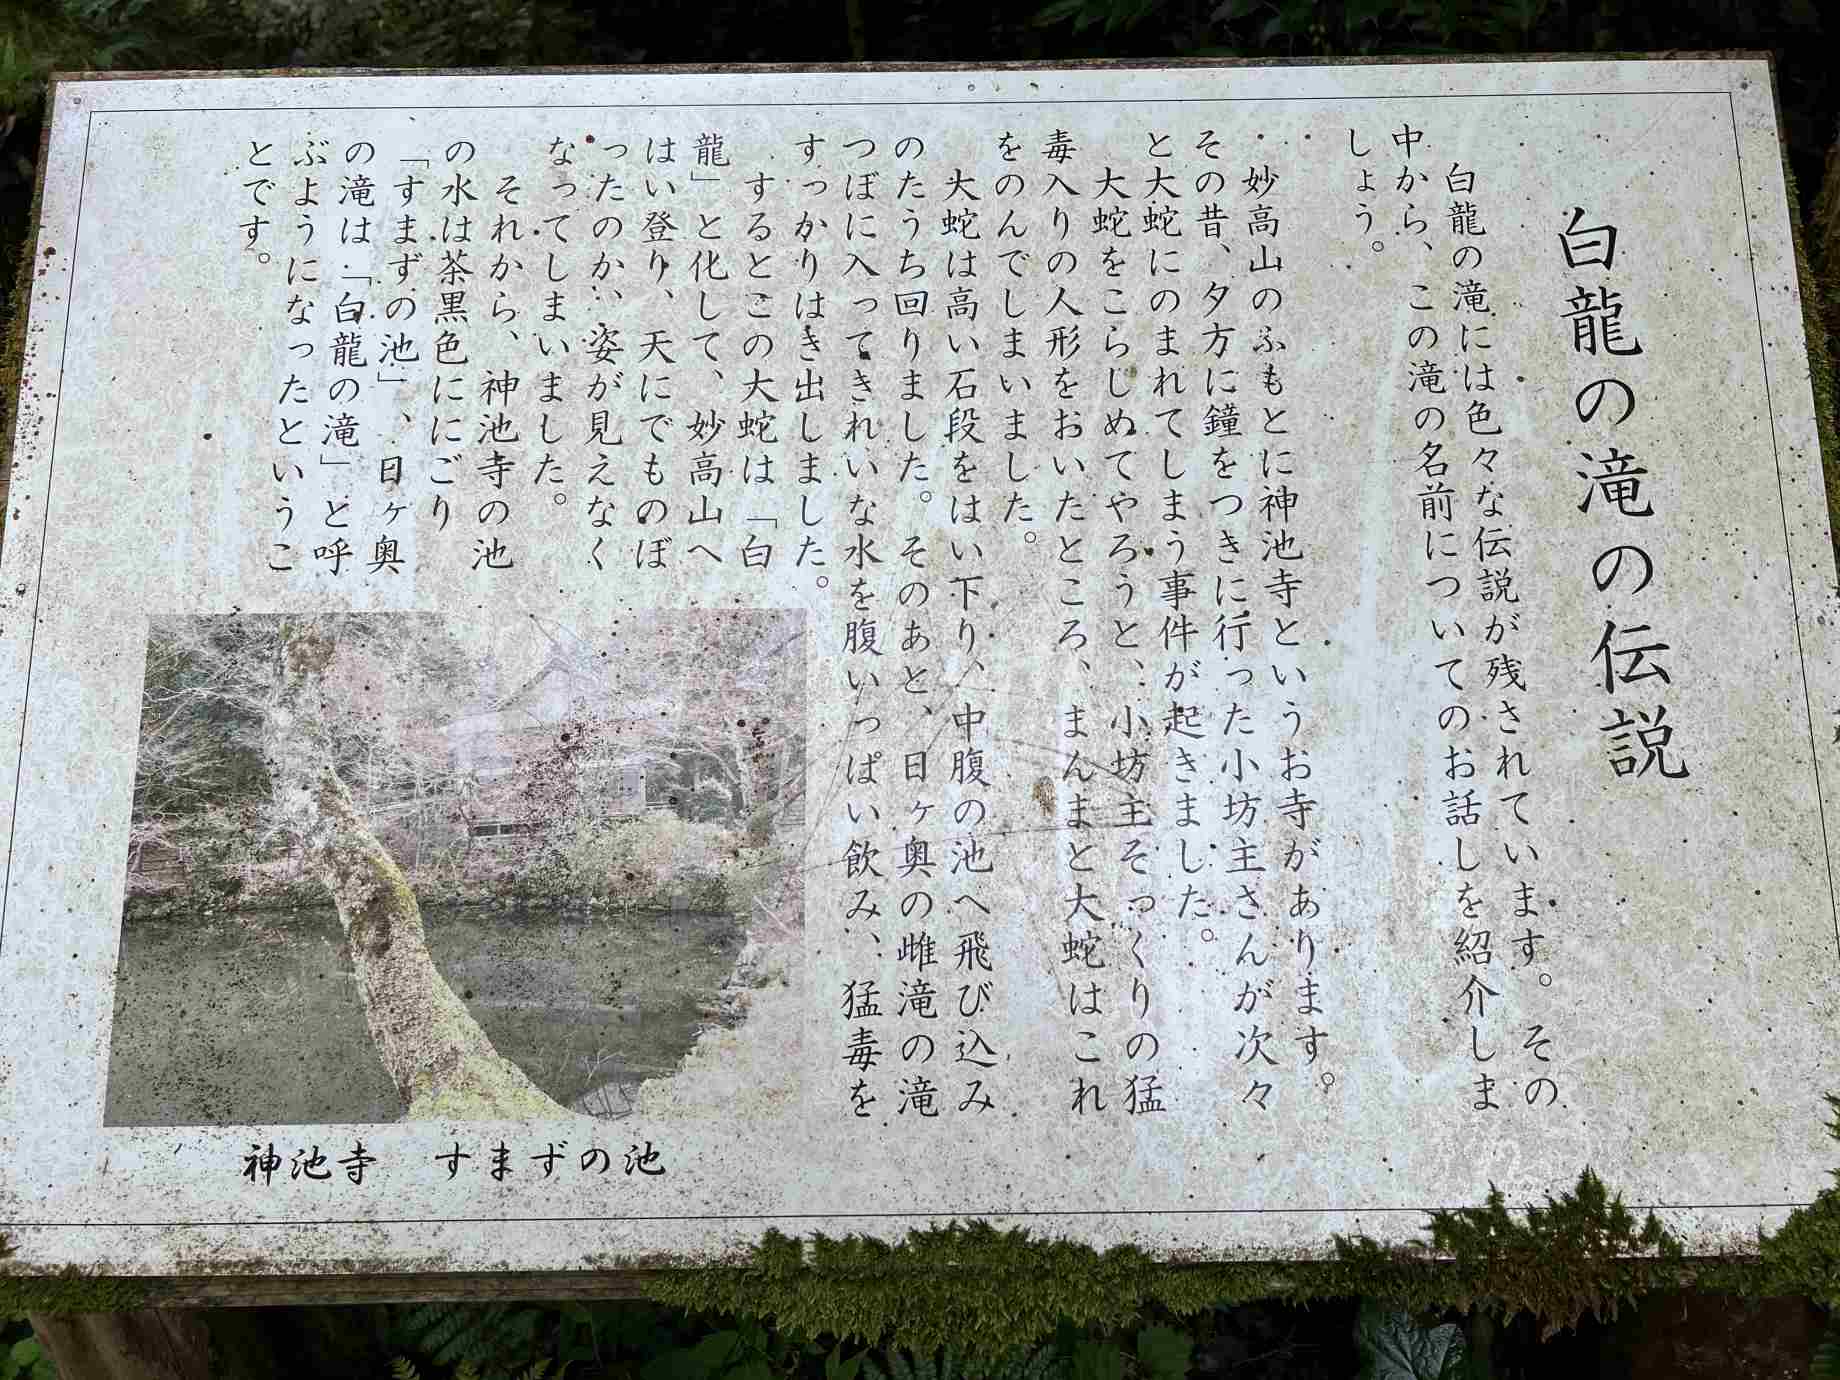 白龍の滝の伝説
白龍の滝には色々な伝説が残されています。その
中から、この滝の名前についてのお話しを紹介しま
しょう。
妙高山のふもとに神池寺というお寺があります。
その昔、夕方に鐘をつきに行った小坊主さんが次々
と大蛇にのまれてしまう事件が起きました。
大蛇をこらしめてやろうと、小坊主そっくりの猛
毒入りの人形をおいたところ、まんまと大蛇はこれ
をのんでしまいました。
大蛇は高い石段をはい下り、中腹の池へ飛び込み
のたうち回りました。そのあと、日ヶ奥の雌滝の滝
つぼに入ってきれいな水を腹いっぱい飲み、猛毒を
すっかりはき出しました。
するとこの大蛇は「白
龍」と化して、妙高山へ
はい登り、天にでものぼ
ったのか、姿が見えなく
なってしまいました。
それから、神池寺の池
の水は茶黒色ににごり
「すまずの池」、日ヶ奥
の滝は「白龍の滝」と呼
ぶようになったというこ
とです。
神池寺　すまずの池